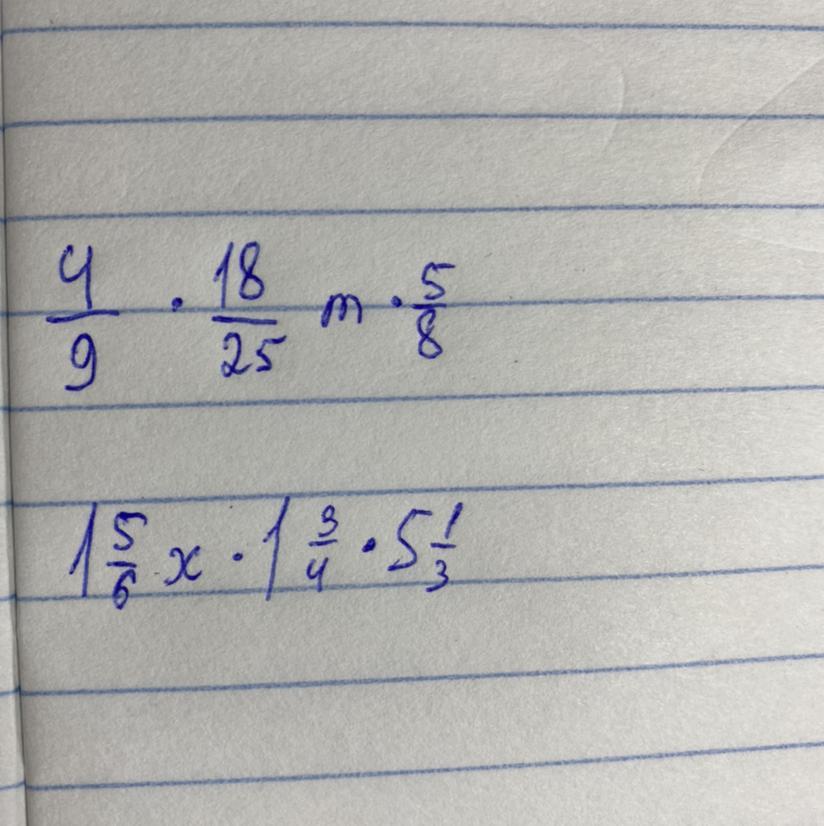 4/9 · 18/25 m · 5/8
1 5/6 x · 1 3/4 · 5 1/3